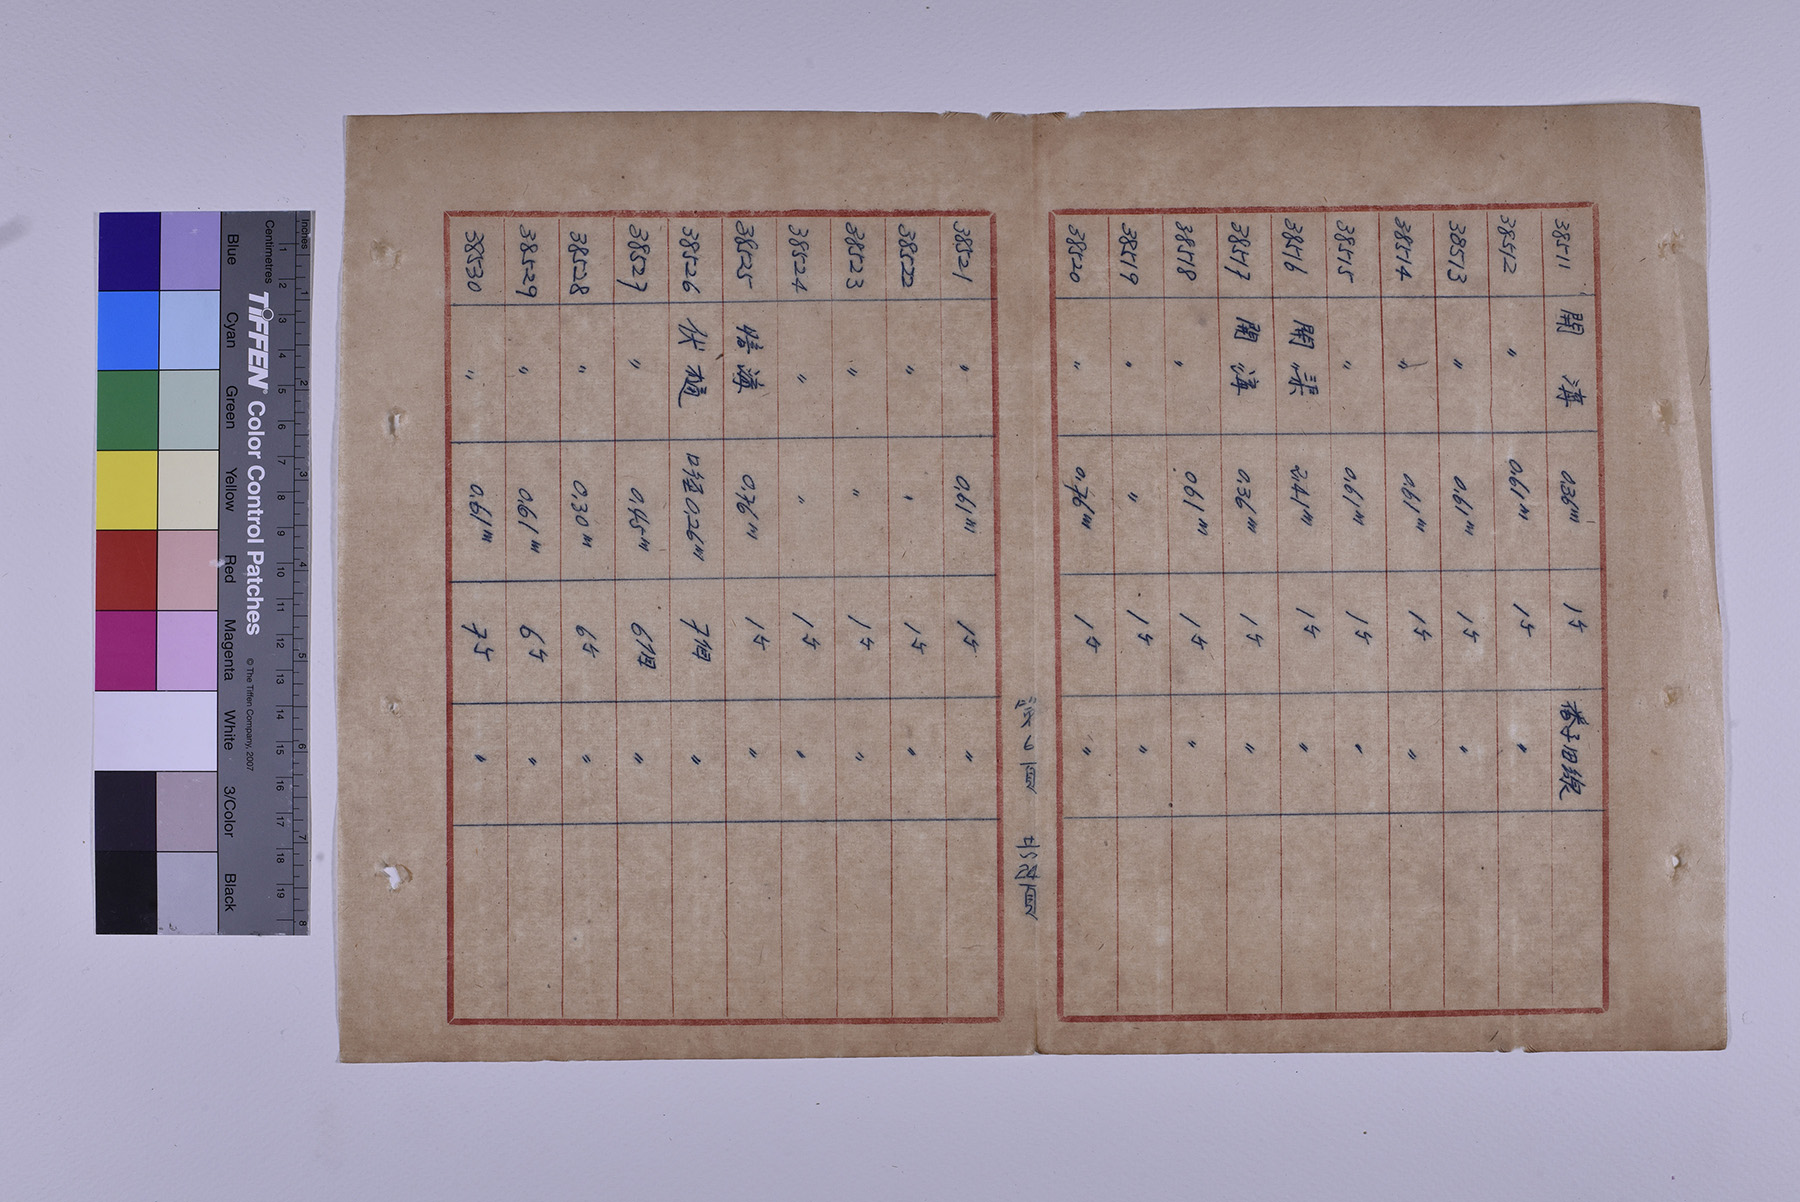 38511 開溝 0.36m 1ケ 番子田線
38512 〃 0.61m 1ケ 〃
38513 〃 0.61m 1ケ 〃
38514 〃 0.61m 1ケ 〃
38515 〃 0.61m 1ケ 〃
38516 開渠 2.41m 1ケ 〃
38517 開溝 0.36m 1ケ 〃
38518 〃 0.61m 1ケ 〃
38519 〃 〃 1ケ 〃
38520 〃 0.76m 1ケ 〃
38521 〃 0.61m 1ケ 〃
38522 〃 〃 1ケ 〃
38523 〃 〃 1ケ 〃
38524 〃 〃 1ケ 〃
38525 暗溝 0.76m 1ケ 〃
38526 伏樋 口径0.26m 7個 〃
38527 〃 0.45m 6個 〃
38528 〃 0.30m 6ケ 〃
38529 〃 0.61m 6ケ 〃
38530 〃 0.61m 7ケ 〃
TIFFEN® Color Control Patches
© The Tiffen Company, 2007
Inches
1 2 3 4 5 6 7 8
Centimetres
1 2 3 4 5 6 7 8 9 10 11 12 13 14 15 16 17 18 19
Blue
Cyan
Green
Yellow
Red
Magenta
White
3/Color
Black